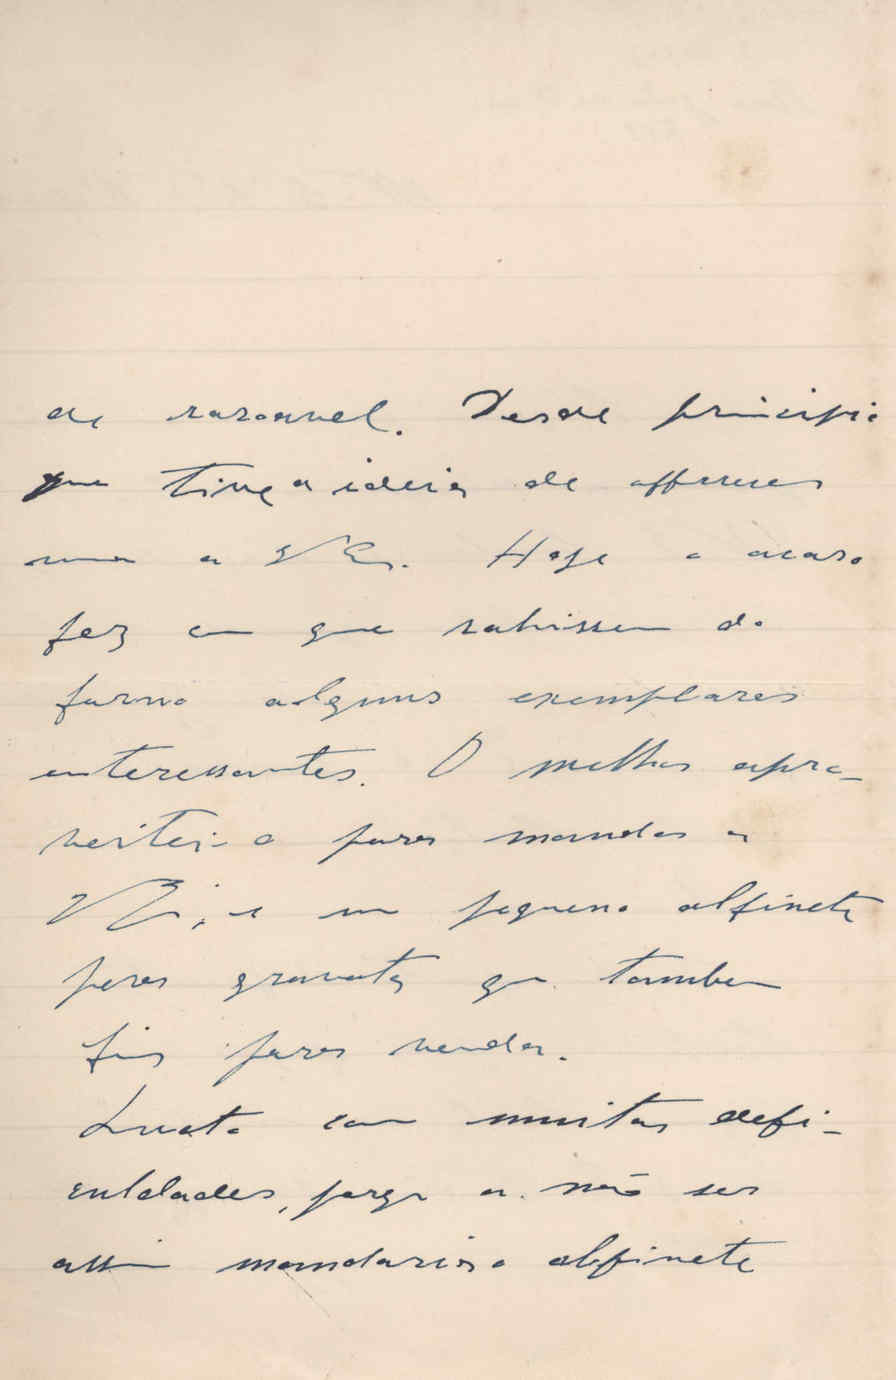 de rasoavel. Desde principio
que tive a ideia de offerecer
uma a V Ex. Hoje o acaso
fez com que sahissem do
forno alguns exemplares
interessantes. O melhor apro-
veitei-o para mandar a
V Ex.; e um pequeno alfinete
para gravata que tambem
fiz para vender.
Lucto com muitas defi-
culdades, porque a não ser
assim mandaria o alfinete